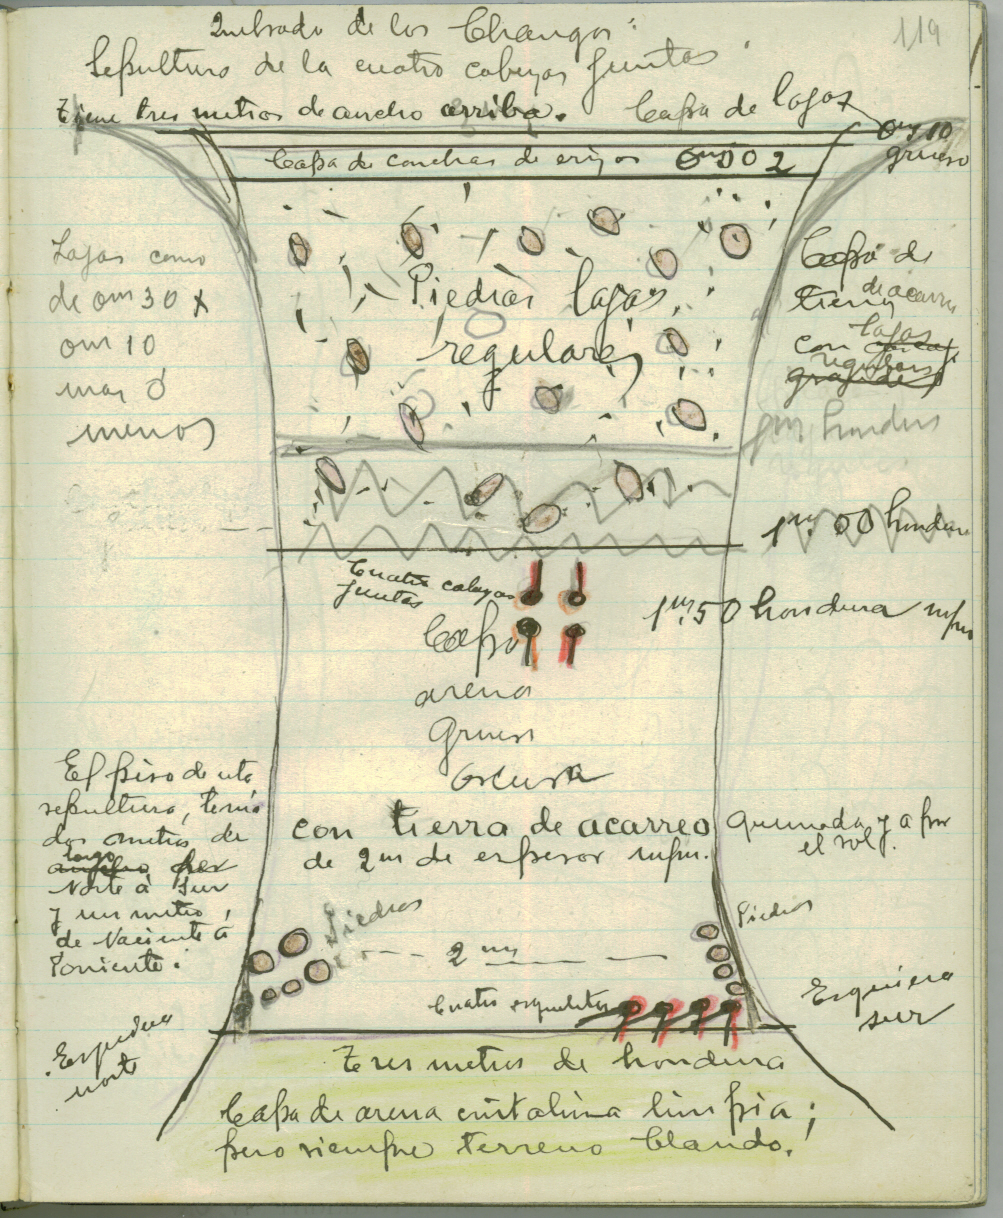 119
Quebrada de los Changos:
Sepultura de la cuatro cabezas juntas
Tiene tres metros de ancho arriba. Capa de lajas
0m10
grueso
Capa de conchas de erizos 0m002
Lajas como
de 0m30 x
0m10
mas ó
menos
Piedras lajas
regulares
Capa de
tierra de acarreo
con lajas
regulares
grandes
1m hondura
1m.00 hondura
Cuatro cabezas
juntas
1m.50 hondura
Capa
arena
Gruesa
oscura
con tierra de acarreo quemada y a por
el sol.
de 2m de espesor
El piso de esta
sepultura, tenía
dos metros de
largo
Norte á Sur
y un metro,
de Naciente á
Poniente.
Piedras
Piedras
2m
Cuatro esqueletos
Esquina
norte
Esquina
sur
Tres metros de hondura
Capa de arena cristalina limpia;
pero siempre terreno blando.